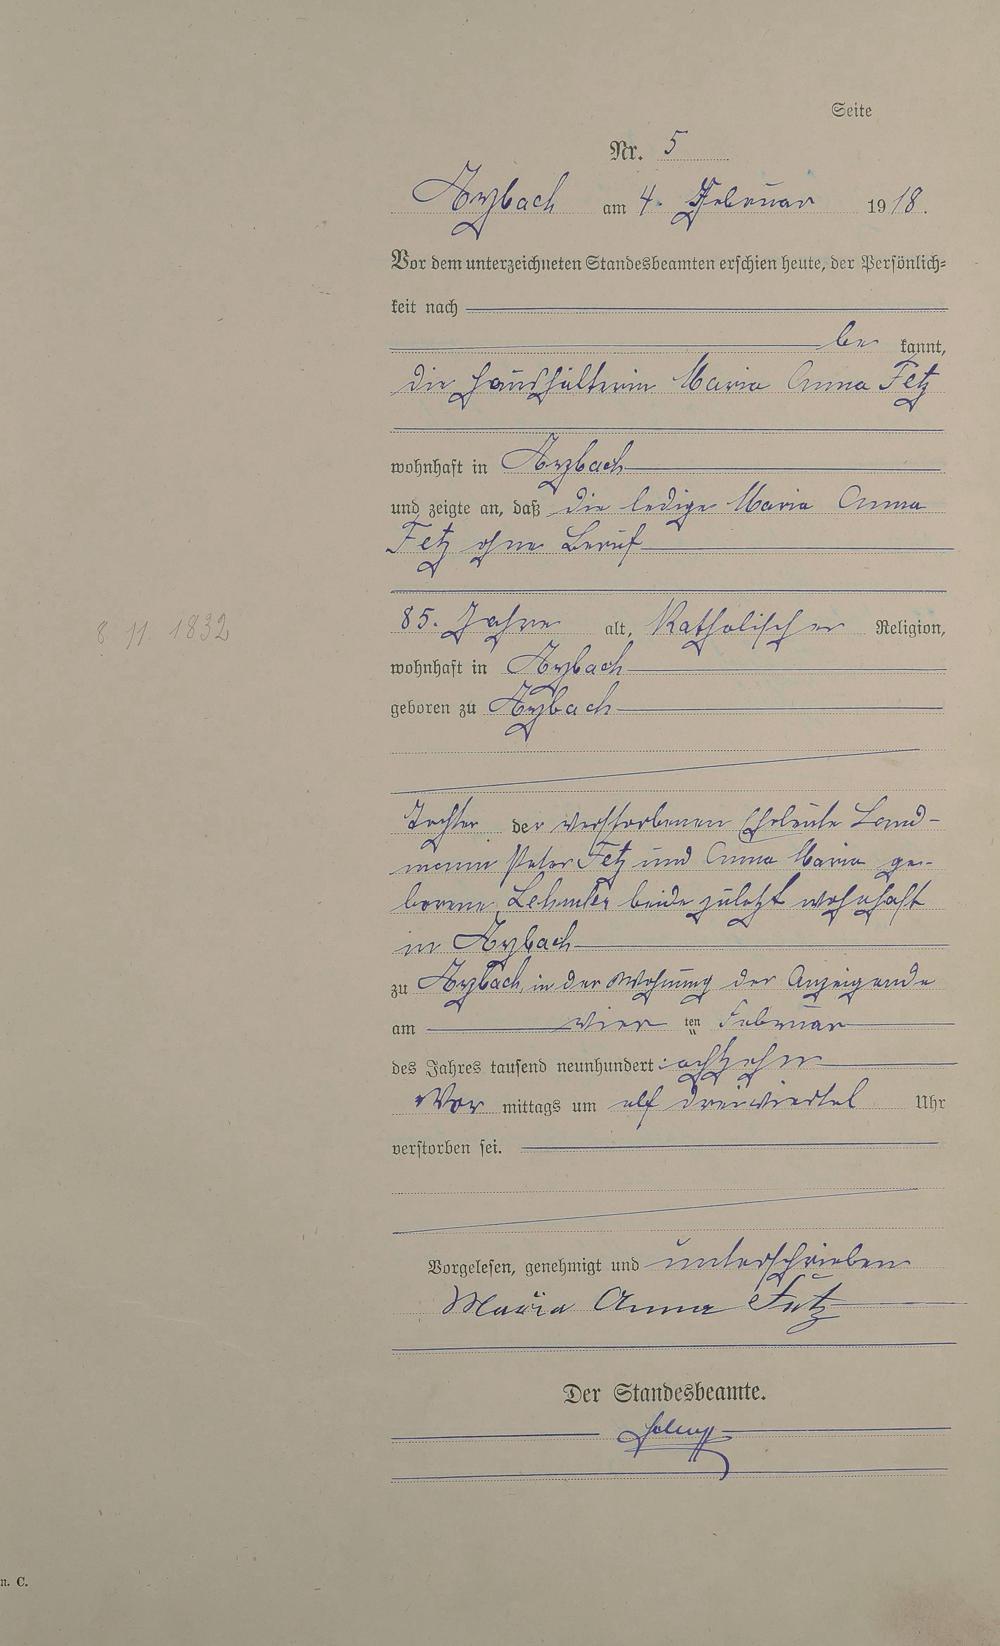 Seite
Nr. 5
Arzbach am 4. Februar 1918.
Vor dem unterzeichneten Standesbeamten erschien heute, der Persönlich-
keit nach
be kannt,
die Haushälterin Maria Anna Fetz
wohnhaft in Arzbach
und zeigte an, daß die ledige Maria Anna
Fetz ohne Beruf
8. 11. 1832
85. Jahre alt, Katholischer Religion,
wohnhaft in Arzbach
geboren zu Arzbach
Tochter der verstorbenen Eheleute Land-
mann Peter Fetz und Anna Maria ge-
borene beide zuletzt wohnhaft
in Arzbach
zu Arzbach, in der Wohnung der Anzeigende
am vier ten Februar
des Jahres tausend neunhundert achtzehn
Vor mittags um elf dreiviertel Uhr
verstorben sei.
Vorgelesen, genehmigt und unterschrieben
Maria Anna Fetz
Der Standesbeamte.
n. C.